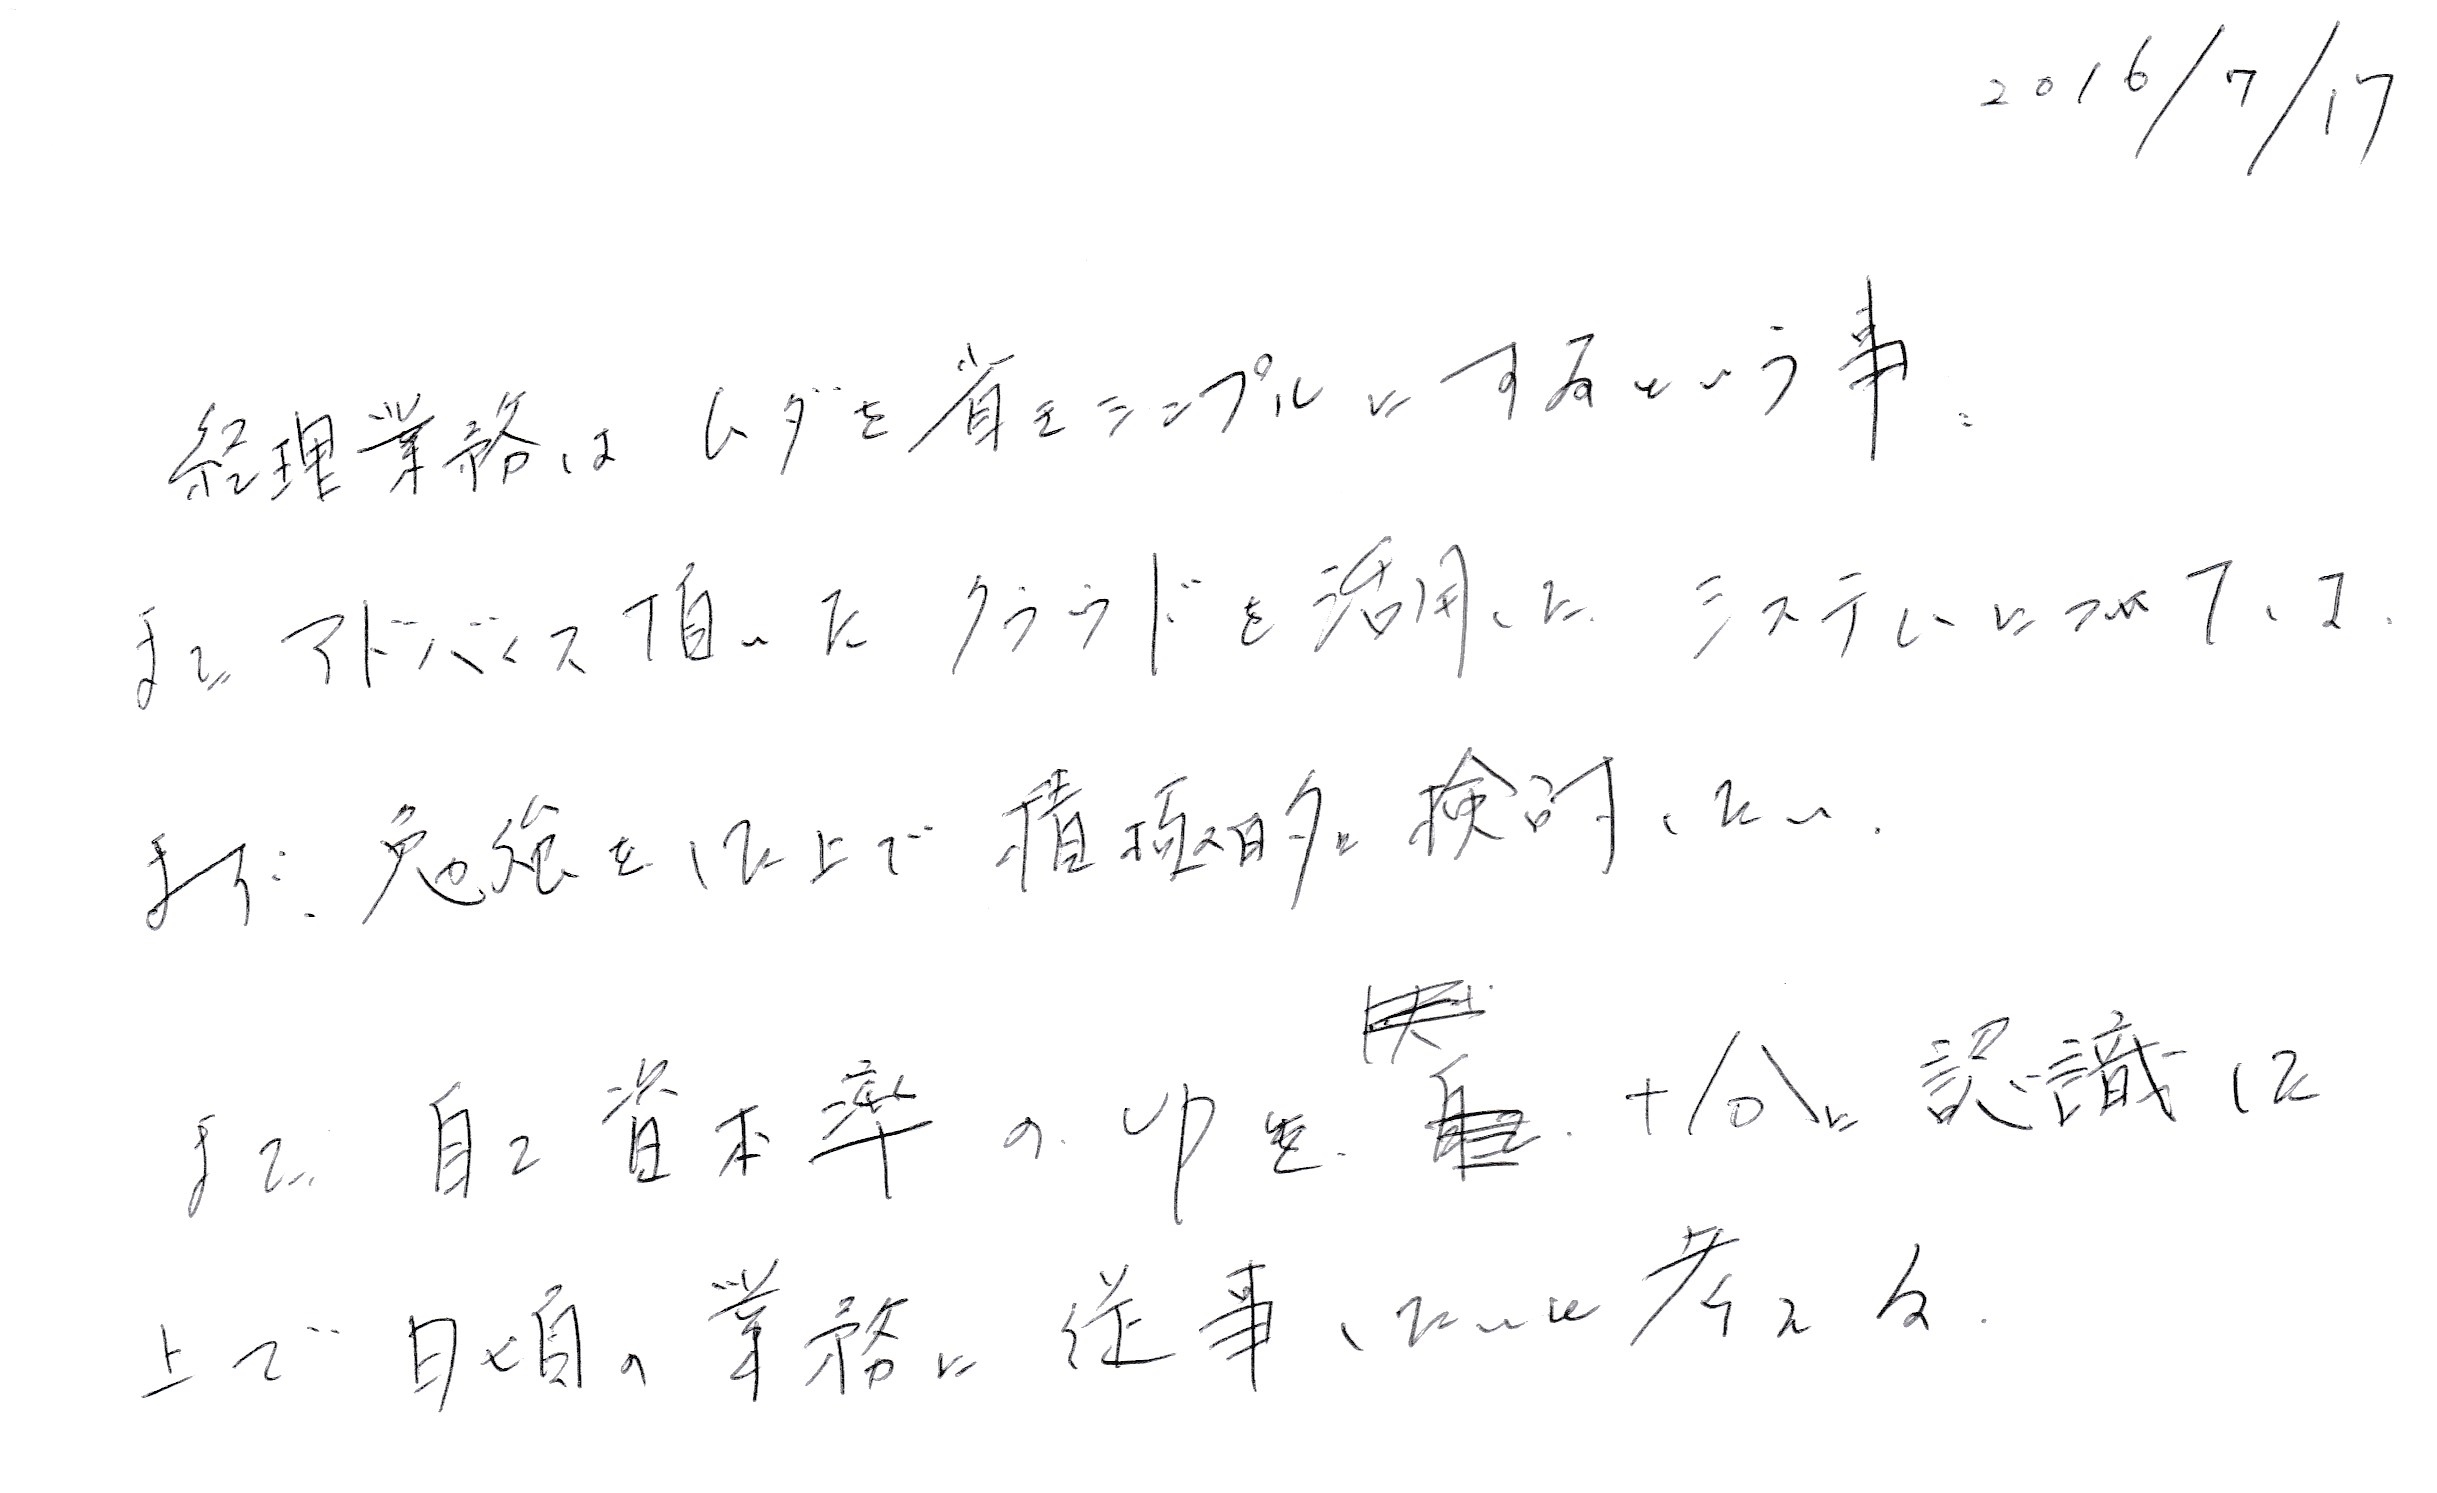 2016/7/17
経理業務はムダを省きシンプルにするという事、
またアドバイス頂いたクラウドを活用したシステムについては、
まず、勉強をした上で積極的に検討したい.
また 自己資本率の を、十分に認識した
上で日頃の業務に従事したいと考える.